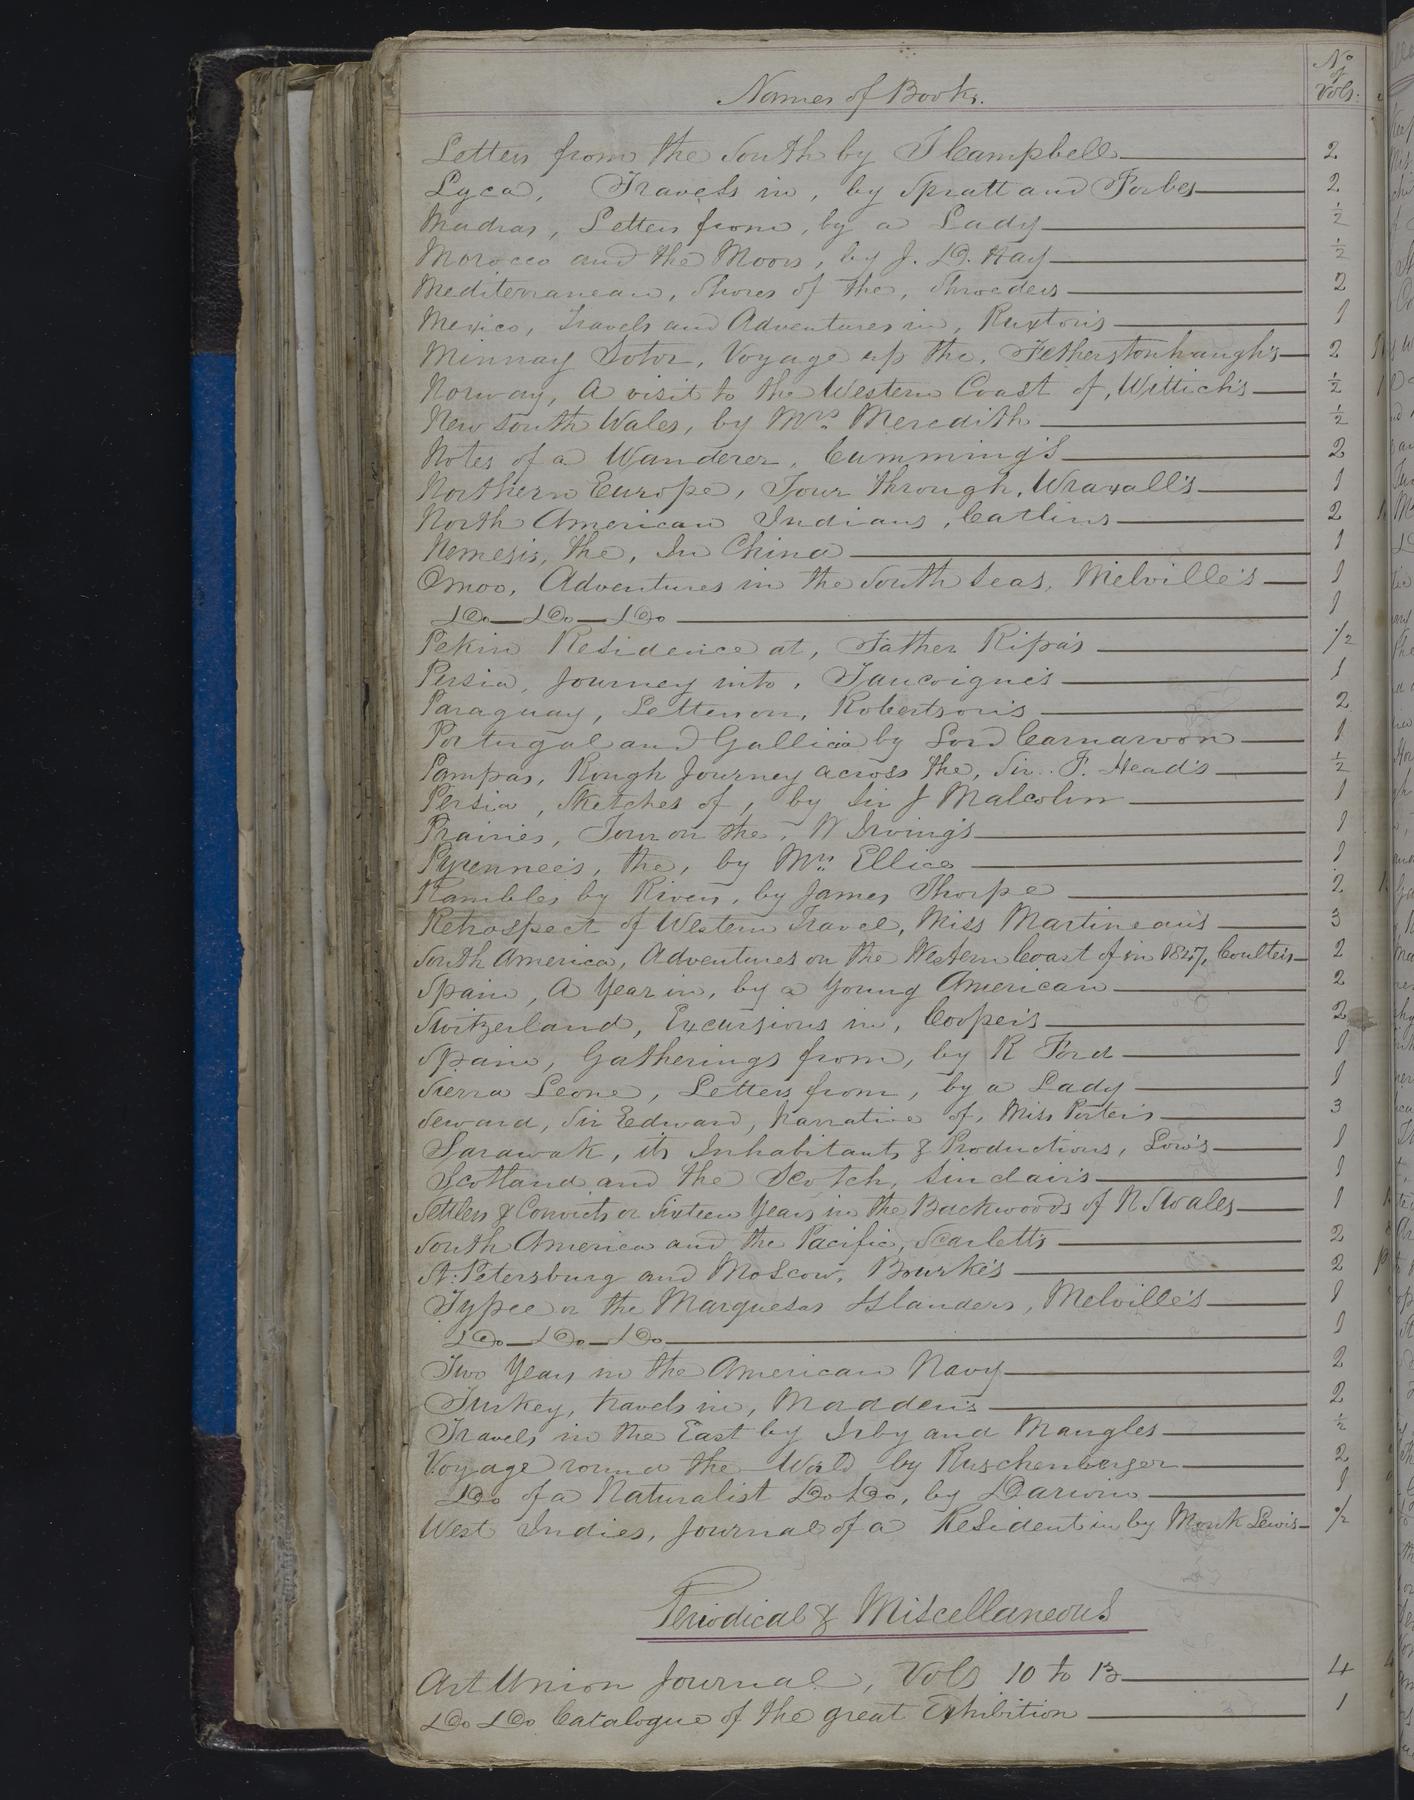 Names of Books.
No of Vols:
Letters from the South by T Campbell 2
Lyca, Travels in, by Spratt and Forbes 2
Madras, Letters from, by a Lady ½
Morocco and the Moors, by J. D. Hay ½
Mediterranean, Shores of the, Shroeders 2
Mexico, Travels and Adventures in, Ruxton's 1
Minnay Sotor, Voyage up the, Fetherstonhaugh's 2
Norway, A visit to the Western Coast of, Wittich's ½
New South Wales, by Mrs. Meredith ½
Notes of a Wanderer, Cumming's 2
Northern Europe, Tour through, Wraxall's 1
North American Indians, Catlins 2
Nemesis, the, In China 1
Omoo, Adventures in the South Seas, Melville's 1
Do Do Do 1
Pekin Residence at, Father Ripa's ½
Persia, Journey into, Tancoigne's 1
Paraguay, Letters on, Robertson's 2
Portugal and Gallicia by Lord Carnarvon 1
Pampas, Rough Journey across the, Sir. F. Head's ½
Persia, Sketches of, by Sir J Malcolm 1
Prairies, Tour on the, W Irving's 1
Pyrennee's, the, by Mrs. Ellice 1
Rambles by Rivers, by James Thorpe 2
Retrospect of Western Travel, Miss Martineau's 3
South America, Adventures on the Western Coast of in 1847, Coulter's 2
Spain, A Year in, by a Young American 2
Switzerland, Excursions in, Cooper's 2
Spain, Gatherings from, by R Ford 1
Sierra Leone, Letters from, by a Lady 1
Seward, Sir Edward, Narrative of, Miss Porter's 3
Sarawak, its Inhabitants & Productions, Low's 1
Scotland and the Scotch, Sinclair's 1
Settlers & Convicts or Sixteen Years in the Backwoods of N S Wales 1
South America and the Pacific, Scarlett's 2
St. Petersburg and Moscow, Bourke's 2
Typee or the Marquesas Islanders, Melville's 1
Do Do Do 1
Two Years in the American Navy 2
Turkey, travels in, Madden's 2
Travels in the East by Irby and Mangles ½
Voyage round the World by Ruschenberger 2
Do of a Naturalist Do Do, by Darwin 1
West Indies, Journal of a Resident in by Monk Lewis ½
Periodical & Miscellaneous
Art Union Journal, Vols 10 to 13 4
Do Do Catalogue of the great Exhibition 1